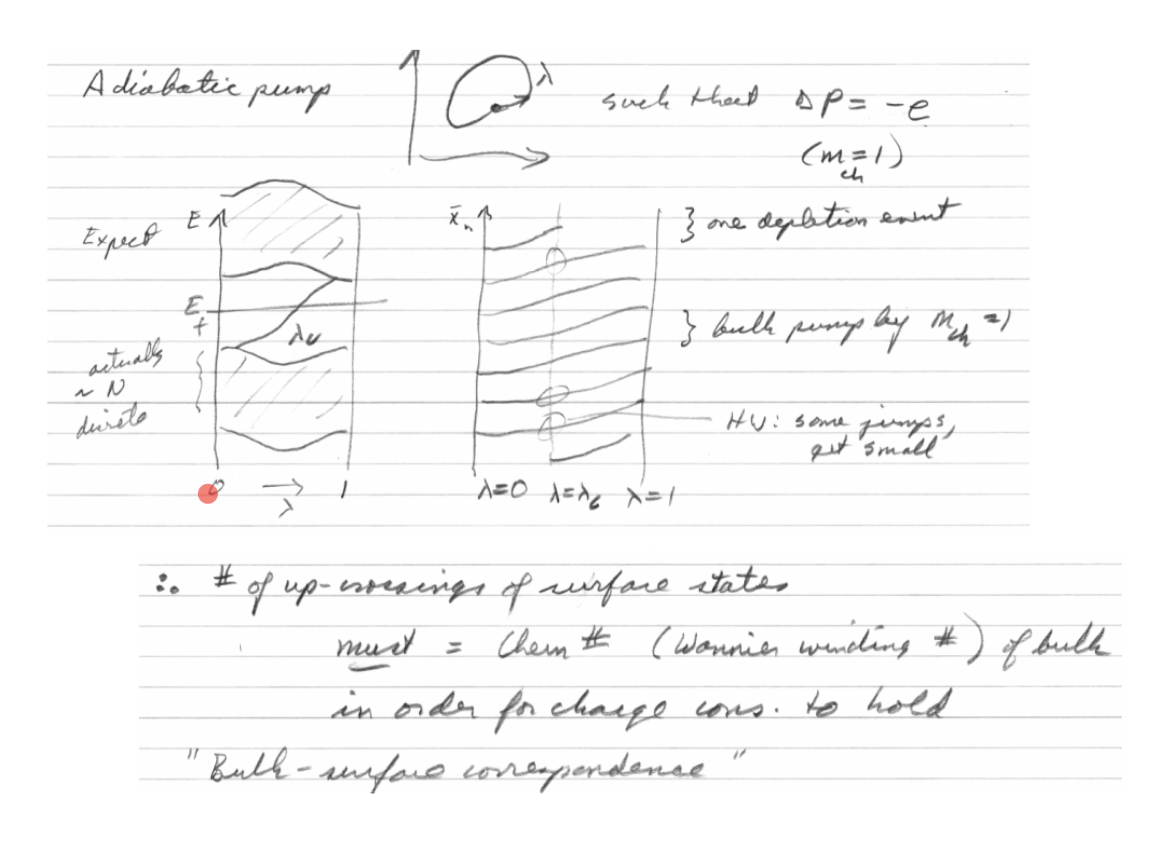 Adiabatic pump
λ
such that ΔP = -e
(m_ch = 1)
Expect
E
E_f
λ_c
actually
~ N
discrete
0 → 1
λ
x̄_n
} one depletion event
} bulk pump by m_ch = 1
HW: some jumps,
get small
λ=0 λ=λ_c λ=1
∴ # of up-crossings of surface states
must = Chern # (Wannier winding #) of bulk
in order for charge cons. to hold
"Bulk-surface correspondence"